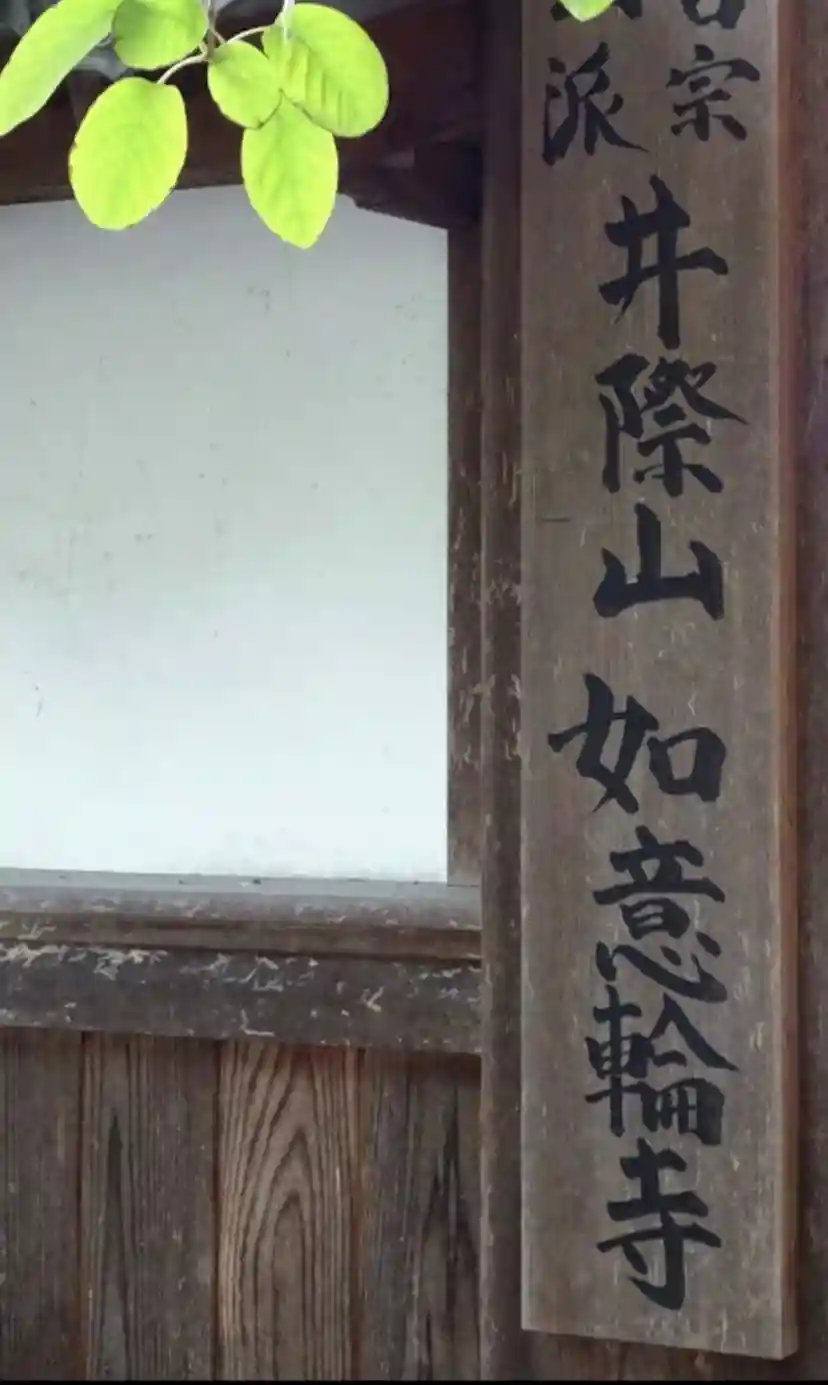 宗
派
井際山 如意輪寺